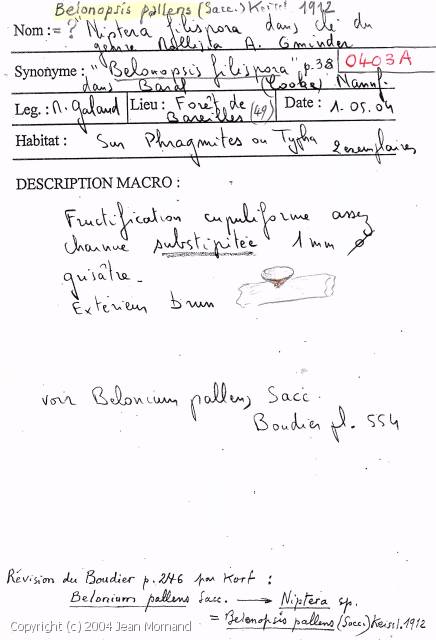 Belonopsis pallens (Sacc.) Keissl 1912
Nom := ? Niptera filispora dans clé du
genre Mollisia A. Gminder
Synonyme : "Belonopsis filispora" p.38 0403A
dans Baral (Cooke) Nannf.
Leg. : M. Galand Lieu : Forêt de Date : 1.05.04
Bareilles (49)
Habitat : Sur Phragmites ou Typha 2 exemplaires
DESCRIPTION MACRO :
Fructification cupuliforme assez
charnue substipitée 1 mm ø
grisâtre -
Extérieur brun
voir Belonium pallens, Sacc.
Boudier pl. 554
Révision du Boudier p. 246 par Korf :
Belonium pallens Sacc. → Niptera sp.
= Belonopsis pallens (Sacc.) Keissl. 1912
Copyright (c) 2004 Jean Mornand